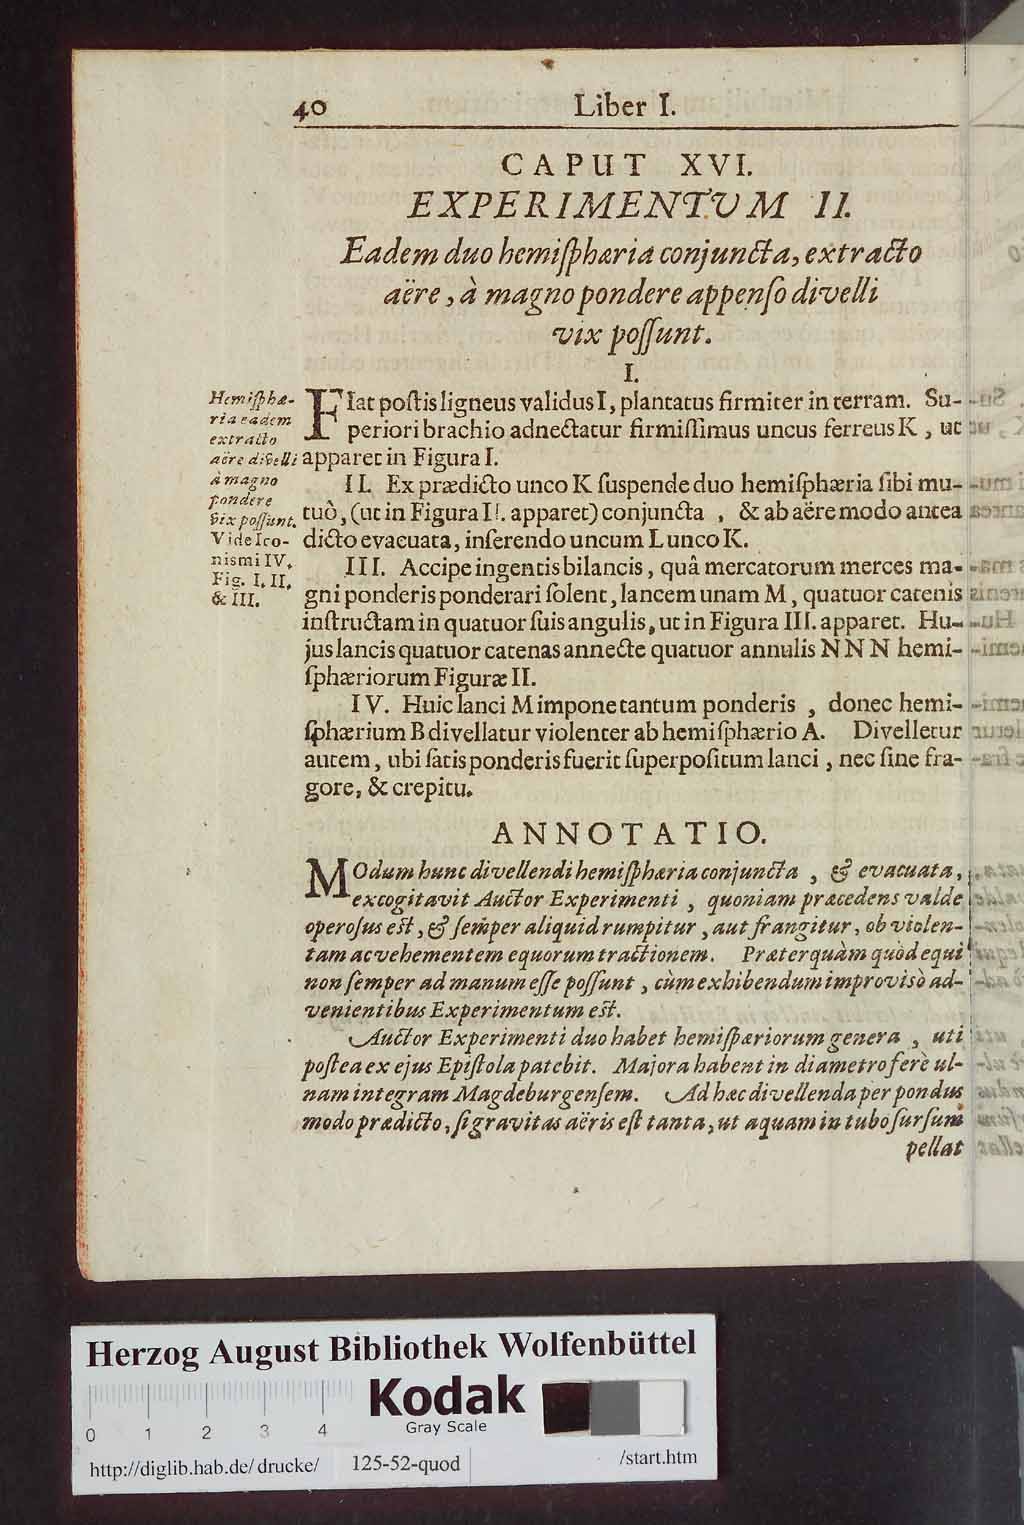 40 Liber I.
CAPUT XVI.
EXPERIMENTVM II.
Eadem duo hemiſphæria conjuncta, extracto
aëre, à magno pondere appenſo divelli
vix poſſunt.
I.
Hemiſphæ-
ria eadem
extracto
aëre divelli
à magno
pondere
vix poſſunt.
Vide Ico-
nismi IV.
Fig. I. II.
& III.
FIat poſtis ligneus validus I, plantatus firmiter in terram. Su-
periori brachio adnectatur firmiſſimus uncus ferreus K, ut
apparet in Figura I.
II. Ex prædicto unco K ſuspende duo hemiſphæria ſibi mu-
tuò, (ut in Figura II. apparet) conjuncta, & ab aëre modo antea
dicto evacuata, inſerendo uncum L unco K.
III. Accipe ingentis bilancis, quâ mercatorum merces ma-
gni ponderis ponderari ſolent, lancem unam M, quatuor catenis
inſtructam in quatuor ſuis angulis, ut in Figura III. apparet. Hu-
jus lancis quatuor catenas annecte quatuor annulis N N N hemi-
ſphæriorum Figuræ II.
IV. Huic lanci M impone tantum ponderis, donec hemi-
ſphærium B divellatur violenter ab hemiſphærio A. Divelletur
autem, ubi ſatis ponderis fuerit ſuperpoſitum lanci, nec ſine fra-
gore, & crepitu.
ANNOTATIO.
MOdum hunc divellendi hemiſphæria conjuncta, & evacuata,
excogitavit Auctor Experimenti, quoniam præcedens valde
operoſus eſt, & ſemper aliquid rumpitur, aut frangitur, ob violen-
tam ac vehementem equorum tractionem. Præterquàm quòd equi
non ſemper ad manum eſſe poſſunt, cùm exhibendum improvisò ad-
venientibus Experimentum eſt.
Auctor Experimenti duo habet hemiſpæriorum genera, uti
poſtea ex ejus Epiſtola patebit. Majora habent in diametro ferè ul-
nam integram Magdeburgenſem. Ad hæc divellenda per pondus
modo prædicto, ſi gravitas aëris eſt tanta, ut aquam in tubo ſurſum
pellat
Herzog August Bibliothek Wolfenbüttel
Kodak
Gray Scale
0 1 2 3 4
http://diglib.hab.de/drucke/ 125-52-quod /start.htm